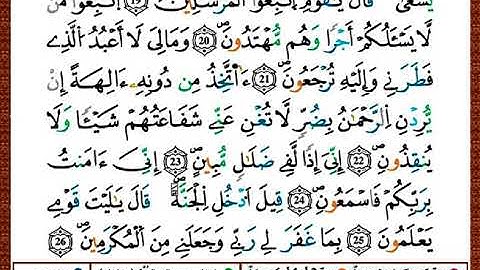 يَسْعَىٰ قَالَ يَٰقَوْمِ اِ۪تَّبِعُوا۟ اُ۬لْمُرْسَلِينَ 19 اَ۪تَّبِعُوا۟ مَن
لَّا يَسْـَٔلُكُمْ أَجْرًا وَهُم مُّهْتَدُونَ 20 وَمَالِيَ لَا أَعْبُدُ اُ۬لَّذِے
فَطَرَنِے وَإِلَيْهِ تُرْجَعُونَ 21 ءَآتَّخِذُ مِن دُونِهِۦ ءَالِهَةً إِنْ
يُّرِدْنِ اِ۬لرَّحْمَٰنُ بِضُرٍّ لَّا تُغْنِ عَنِّے شَفَاعَتُهُمْ شَيْـًٔا وَلَا
يُنقِذُونِ 22 إِنِّيَ إِذًا لَّفِے ضَلَٰلٍ مُّبِينٍ 23 إِنِّيَ ءَامَنتُ
بِرَبِّكُمْ فَاسْمَعُونِ 24 قِيلَ اَ۟دْخُلِ اِ۬لْجَنَّةَ قَالَ يَٰلَيْتَ قَوْمِے
يَعْلَمُونَ 25 بِمَا غَفَرَ لِے رَبِّے وَجَعَلَنِے مِنَ اَ۬لْمُكْرَمِينَ 26